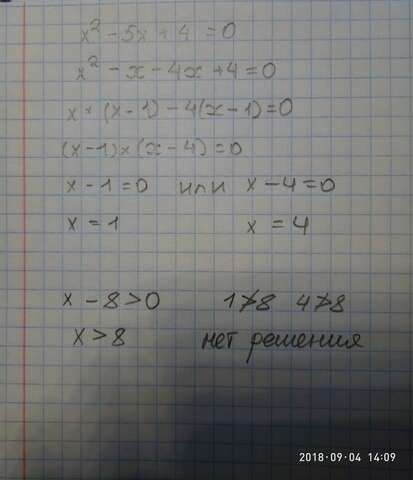 x² - 5x + 4 = 0
x² - x - 4x + 4 = 0
x × (x - 1) - 4(x - 1) = 0
(x - 1) × (x - 4) = 0
x - 1 = 0 или x - 4 = 0
x = 1 x = 4
x - 8 > 0 1 ≯ 8 4 ≯ 8
x > 8 нет решения
2018-09-04 14:09